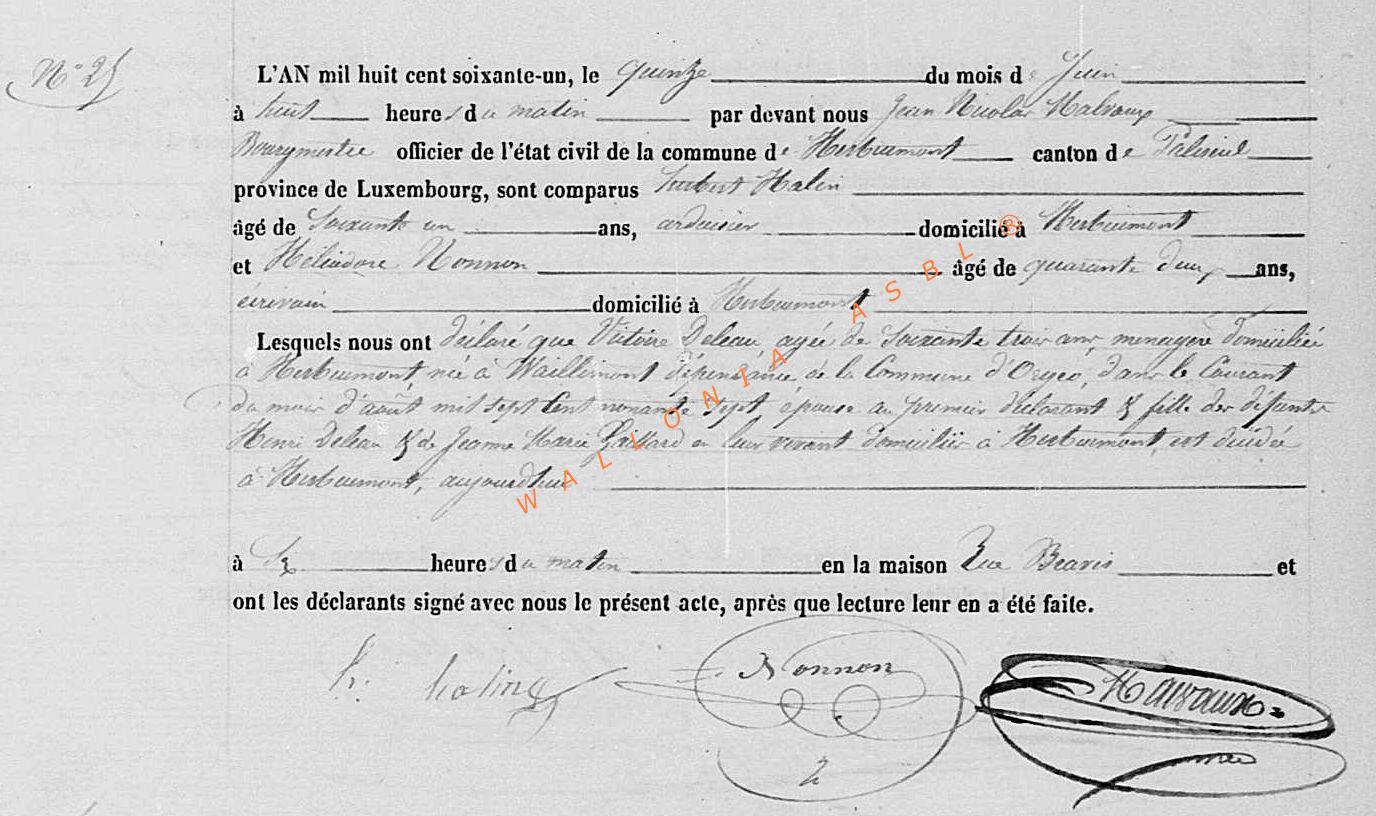 N° 25
L'AN mil huit cent soixante-un, le quinze du mois de Juin
à huit heures du matin par devant nous Jean Nicolas Halvaux
Bourgmestre officier de l'état civil de la commune de Herbeumont canton de Paliseul
province de Luxembourg, sont comparus hubert Halin
âgé de Soixante un ans, ardoisier domicilié à Herbeumont
et Héliodore Nonnon âgé de quarante deux ans,
écrivain domicilié à Herbeumont
Lesquels nous ont déclaré que Victoire Deleau agée de Soixante trois ans, menagère domiciliée
à Herbeumont, née à Waillimont dépendance de la Commune d'Orgeo, dans le Courant
du mois d'août mil sept Cent nonante sept, épouse au premier déclarant & fille des défunts
Henri Deleau & de Jeanne Marie en leur vivant domiciliés à Herbeumont, est décédée
à Herbeumont, aujourd'hui
à Six heures du matin en la maison Rue Bravis et
ont les déclarants signé avec nous le présent acte, après que lecture leur en a été faite.
h. haling Nonnon Halvaux
2
WALLONIA ASBL ®